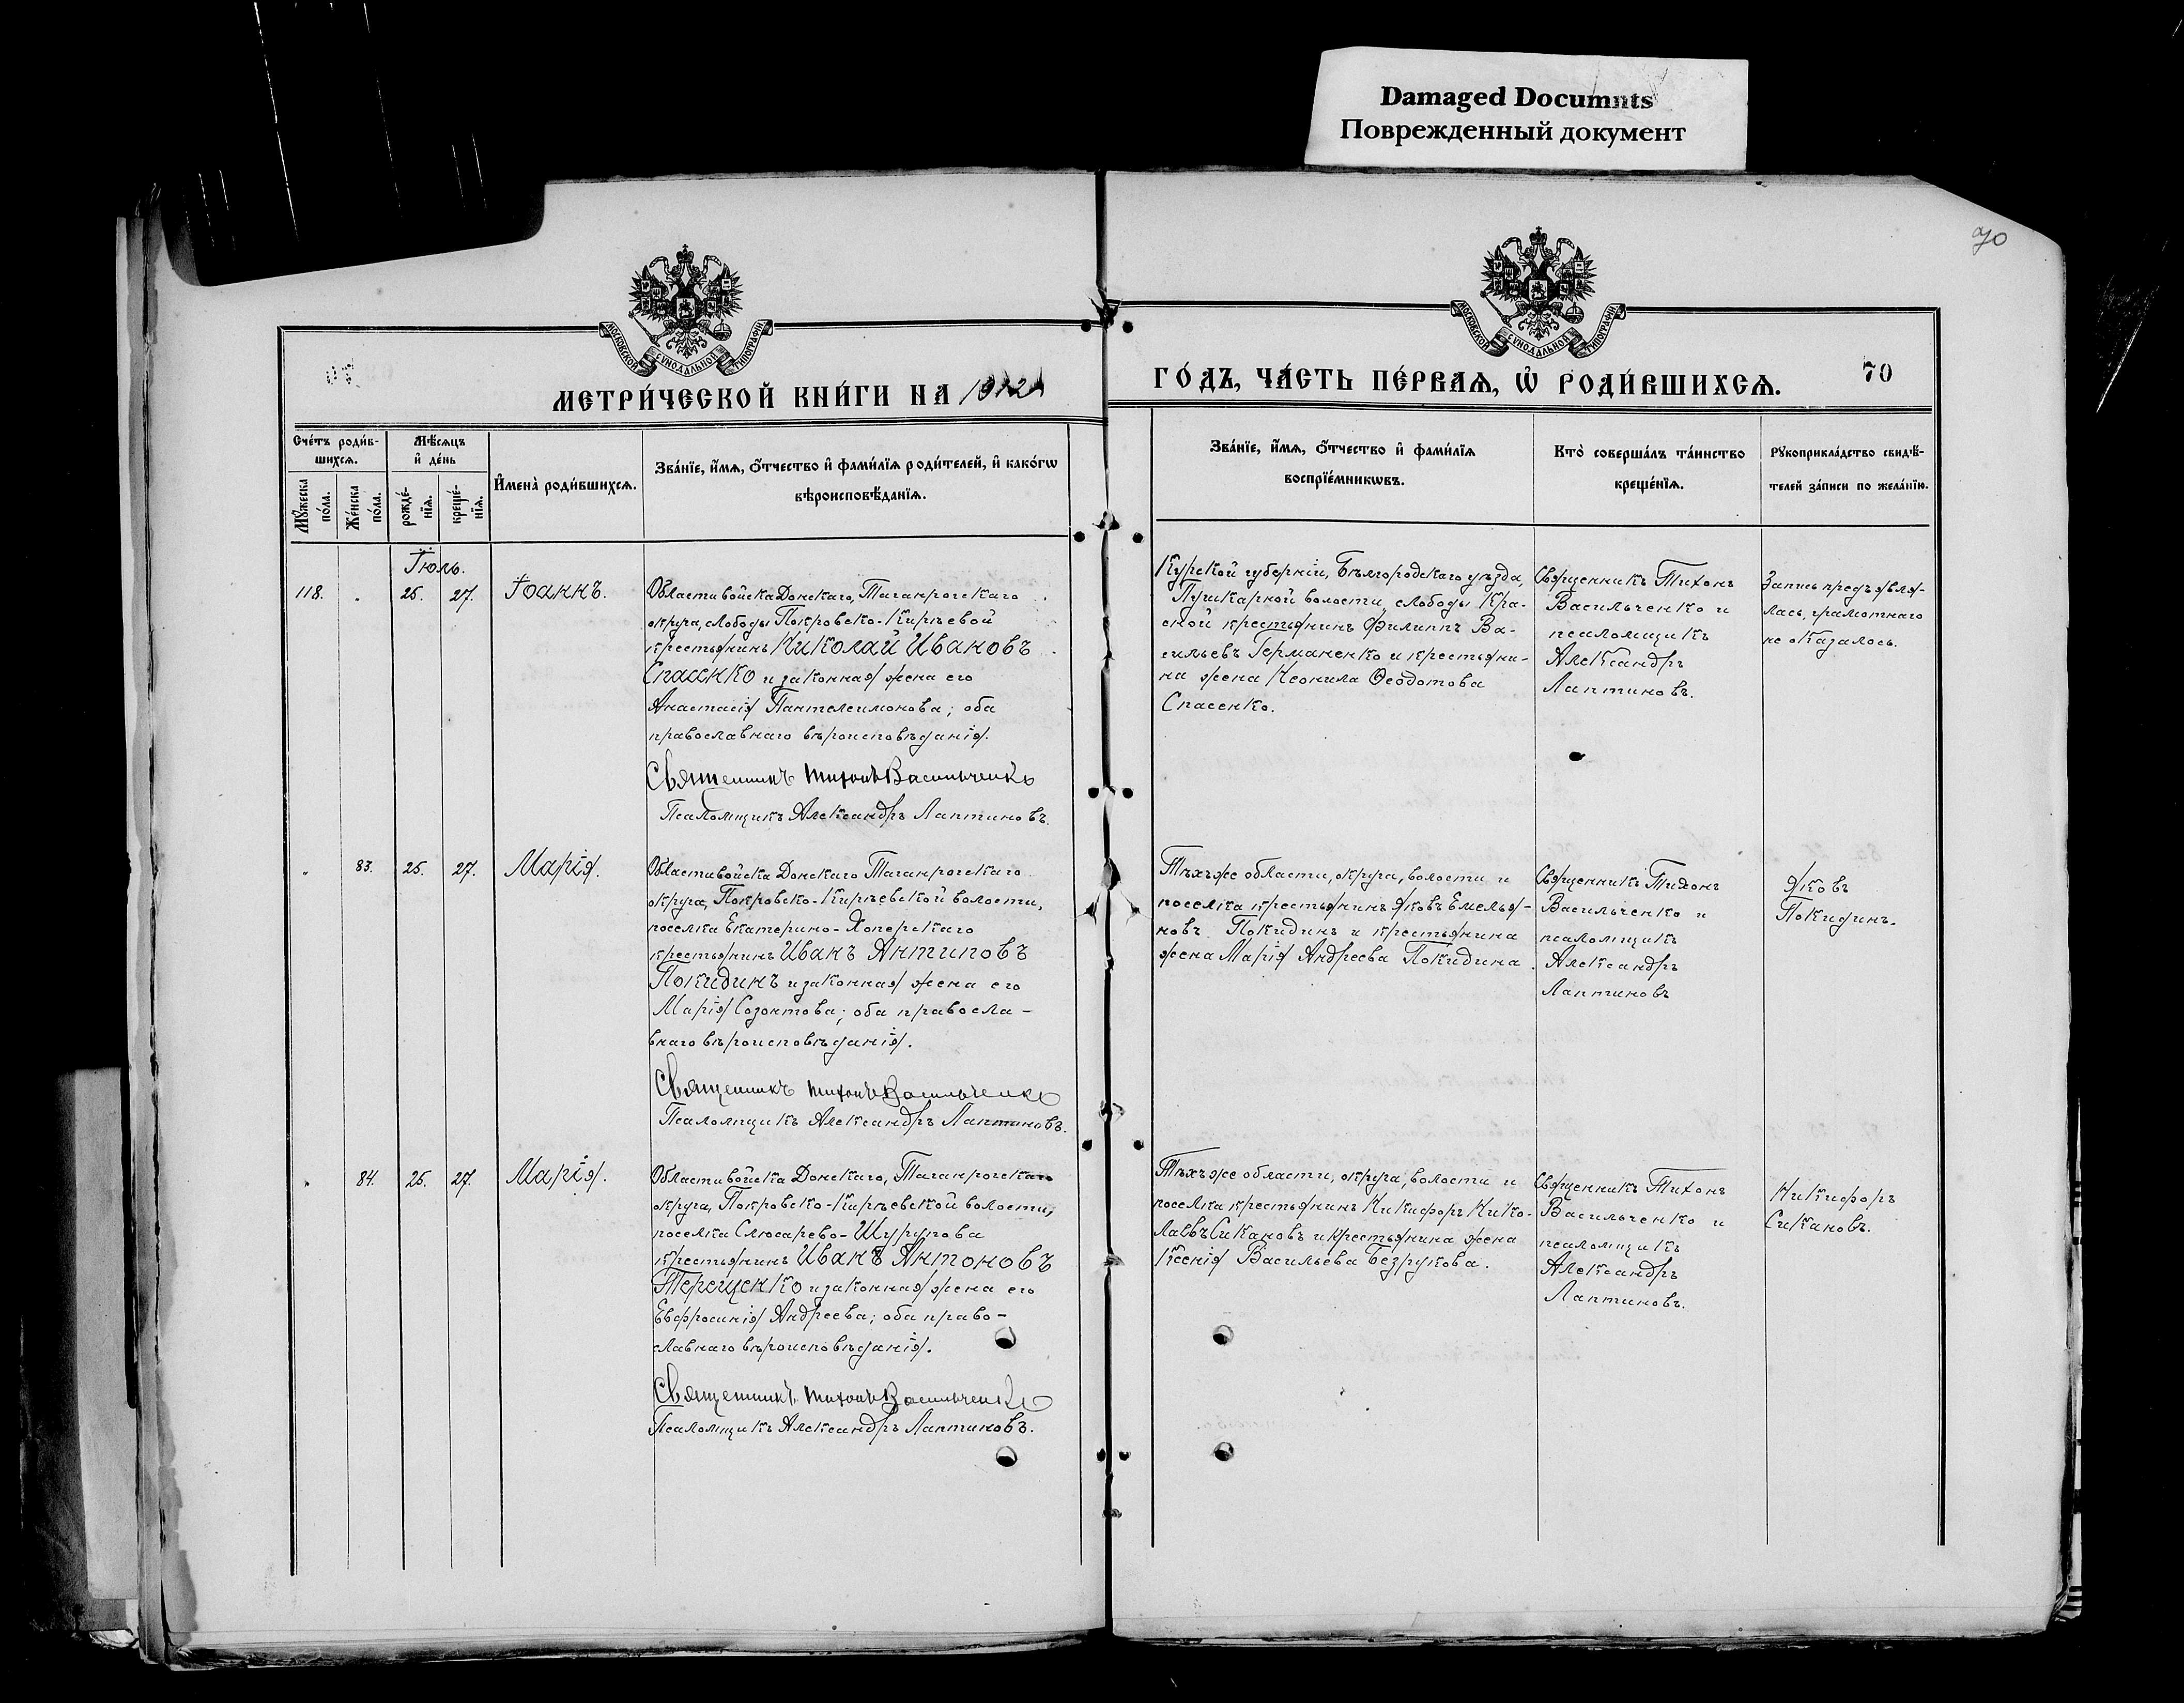 Damaged Documnts
Поврежденный документ
70
МОСКОВСКОЙ СѴНОДАЛЬНОЙ ТИПОГРАФІИ
МОСКОВСКОЙ СѴНОДАЛЬНОЙ ТИПОГРАФІИ
МЕТРИ́ЧЕСКОЙ КНИ́ГИ НА 1912
ГО́ДЪ, ЧА́СТЬ ПЕ́РВАѦ, Ѡ҆ РОДИ́ВШИХСѦ.
70
Сче́тъ роди́в-
шихсѧ.
Мѣ́сѧцъ
и҆ де́нь
Мꙋ́жеска
по́ла.
Же́нска
по́ла.
рожде́-
нїѧ.
креще́-
нїѧ.
И҆мена̀ роди́вшихсѧ.
Зва́нїе, и҆́мѧ, ѻ҆́тчество и҆ фами́лїѧ роди́телей, и҆ како́гѡ
вѣроисповѣ́данїѧ.
Зва́нїе, и҆́мѧ, ѻ҆́тчество и҆ фами́лїѧ
воспрїе́мникѡвъ.
Кто̀ соверша́лъ та́инство
креще́нїѧ.
Рꙋкоприкла́дство свидѣ́-
телей за́писи по жела́нїю.
Іюль.
118. „ 25. 27. Іоаннъ.
Области войска Донскаго, Таганрогскаго
округа, слободы Покровско-Кирѣевой
крестьянинъ Николай Ивановъ
Спасенко и законная жена его
Анастасія Пантелеимонова; оба
православнаго вѣроисповѣданія.
Священникъ Тихонъ Васильченко
Псаломщикъ Александръ Лаптиновъ.
Курской губерніи, Бѣлгородскаго уѣзда,
Пушкарной волости, слободы Кра-
сной крестьянинъ Филиппъ Ва-
сильевъ Германенко и крестьяни-
на жена Неонила Ѳеодотова
Спасенко.
Священникъ Тихонъ
Васильченко и
псаломщикъ
Александръ
Лаптиновъ.
Запись предъявля-
лась, грамотнаго
не оказалось.
„ 83. 25. 27. Марія.
Области войска Донскаго Таганрогскаго
округа, Покровско-Кирѣевской волости,
поселка Екатерино-Хоперскаго
крестьянинъ Иванъ Антиповъ
Покидинъ и законная жена его
Марія Созонтова; оба правосла-
внаго вѣроисповѣданія.
Священникъ Тихонъ Васильченко
Псаломщикъ Александръ Лаптиновъ.
Тѣхъ же области, округа, волости и
поселка крестьянинъ Яковъ Емелья-
новъ Покидинъ и крестьянина
жена Марія Андреева Покидина.
Священникъ Тихонъ
Васильченко и
псаломщикъ
Александръ
Лаптиновъ
Яковъ
Покидинъ.
„ 84. 25. 27. Марія.
Области войска Донскаго, Таганрогскаго
округа, Покровско-Кирѣевской волости,
поселка Слюсарево-Шурупова
крестьянинъ Иванъ Антоновъ
Терещенко и законная жена его
Евфросинія Андреева; оба право-
славнаго вѣроисповѣданія.
Священникъ Тихонъ Васильченко
Псаломщикъ Александръ Лаптиновъ.
Тѣхъ же области, округа, волости и
поселка крестьянинъ Никифоръ Нико-
лаевъ Сикановъ и крестьянина жена
Ксенія Васильева Безрукова.
Священникъ Тихонъ
Васильченко и
псаломщикъ
Александръ
Лаптиновъ.
Никифоръ
Сикановъ.